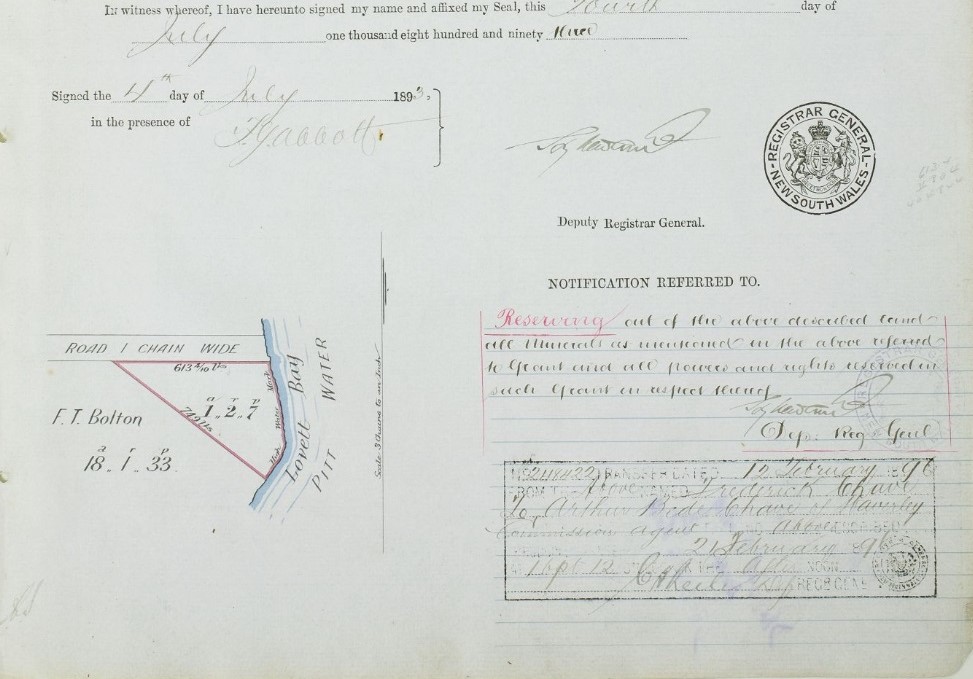 In witness whereof, I have hereunto signed my name and affixed my Seal, this Fourth day of
July one thousand eight hundred and ninety three
Signed the 4th day of July 1893.
in the presence of
REGISTRAR GENERAL
NEW SOUTH WALES
Deputy Registrar General.
NOTIFICATION REFERRED TO.
Reserving out of the above described land
all Minerals as mentioned in the above referred
to Grant and all powers and rights reserved in
such Grant in respect thereof
Dep: Reg Genl
ROAD 1 CHAIN WIDE
F. T. Bolton
a r p
18. 1. 33.
a r p
1. 2. 7
High Water Mark
Lovett Bay
PITT WATER
Scale 3 Chains to an Inch
TRANSFER DATED 12 February 1896
FROM THE ABOVENAMED Frederick Chave
To Arthur Bede Chave of Waverley
Commission agent ABOVE DESCRIBED
21 February 1896
12 o'CLOCK IN THE NOON.
REG. GENL